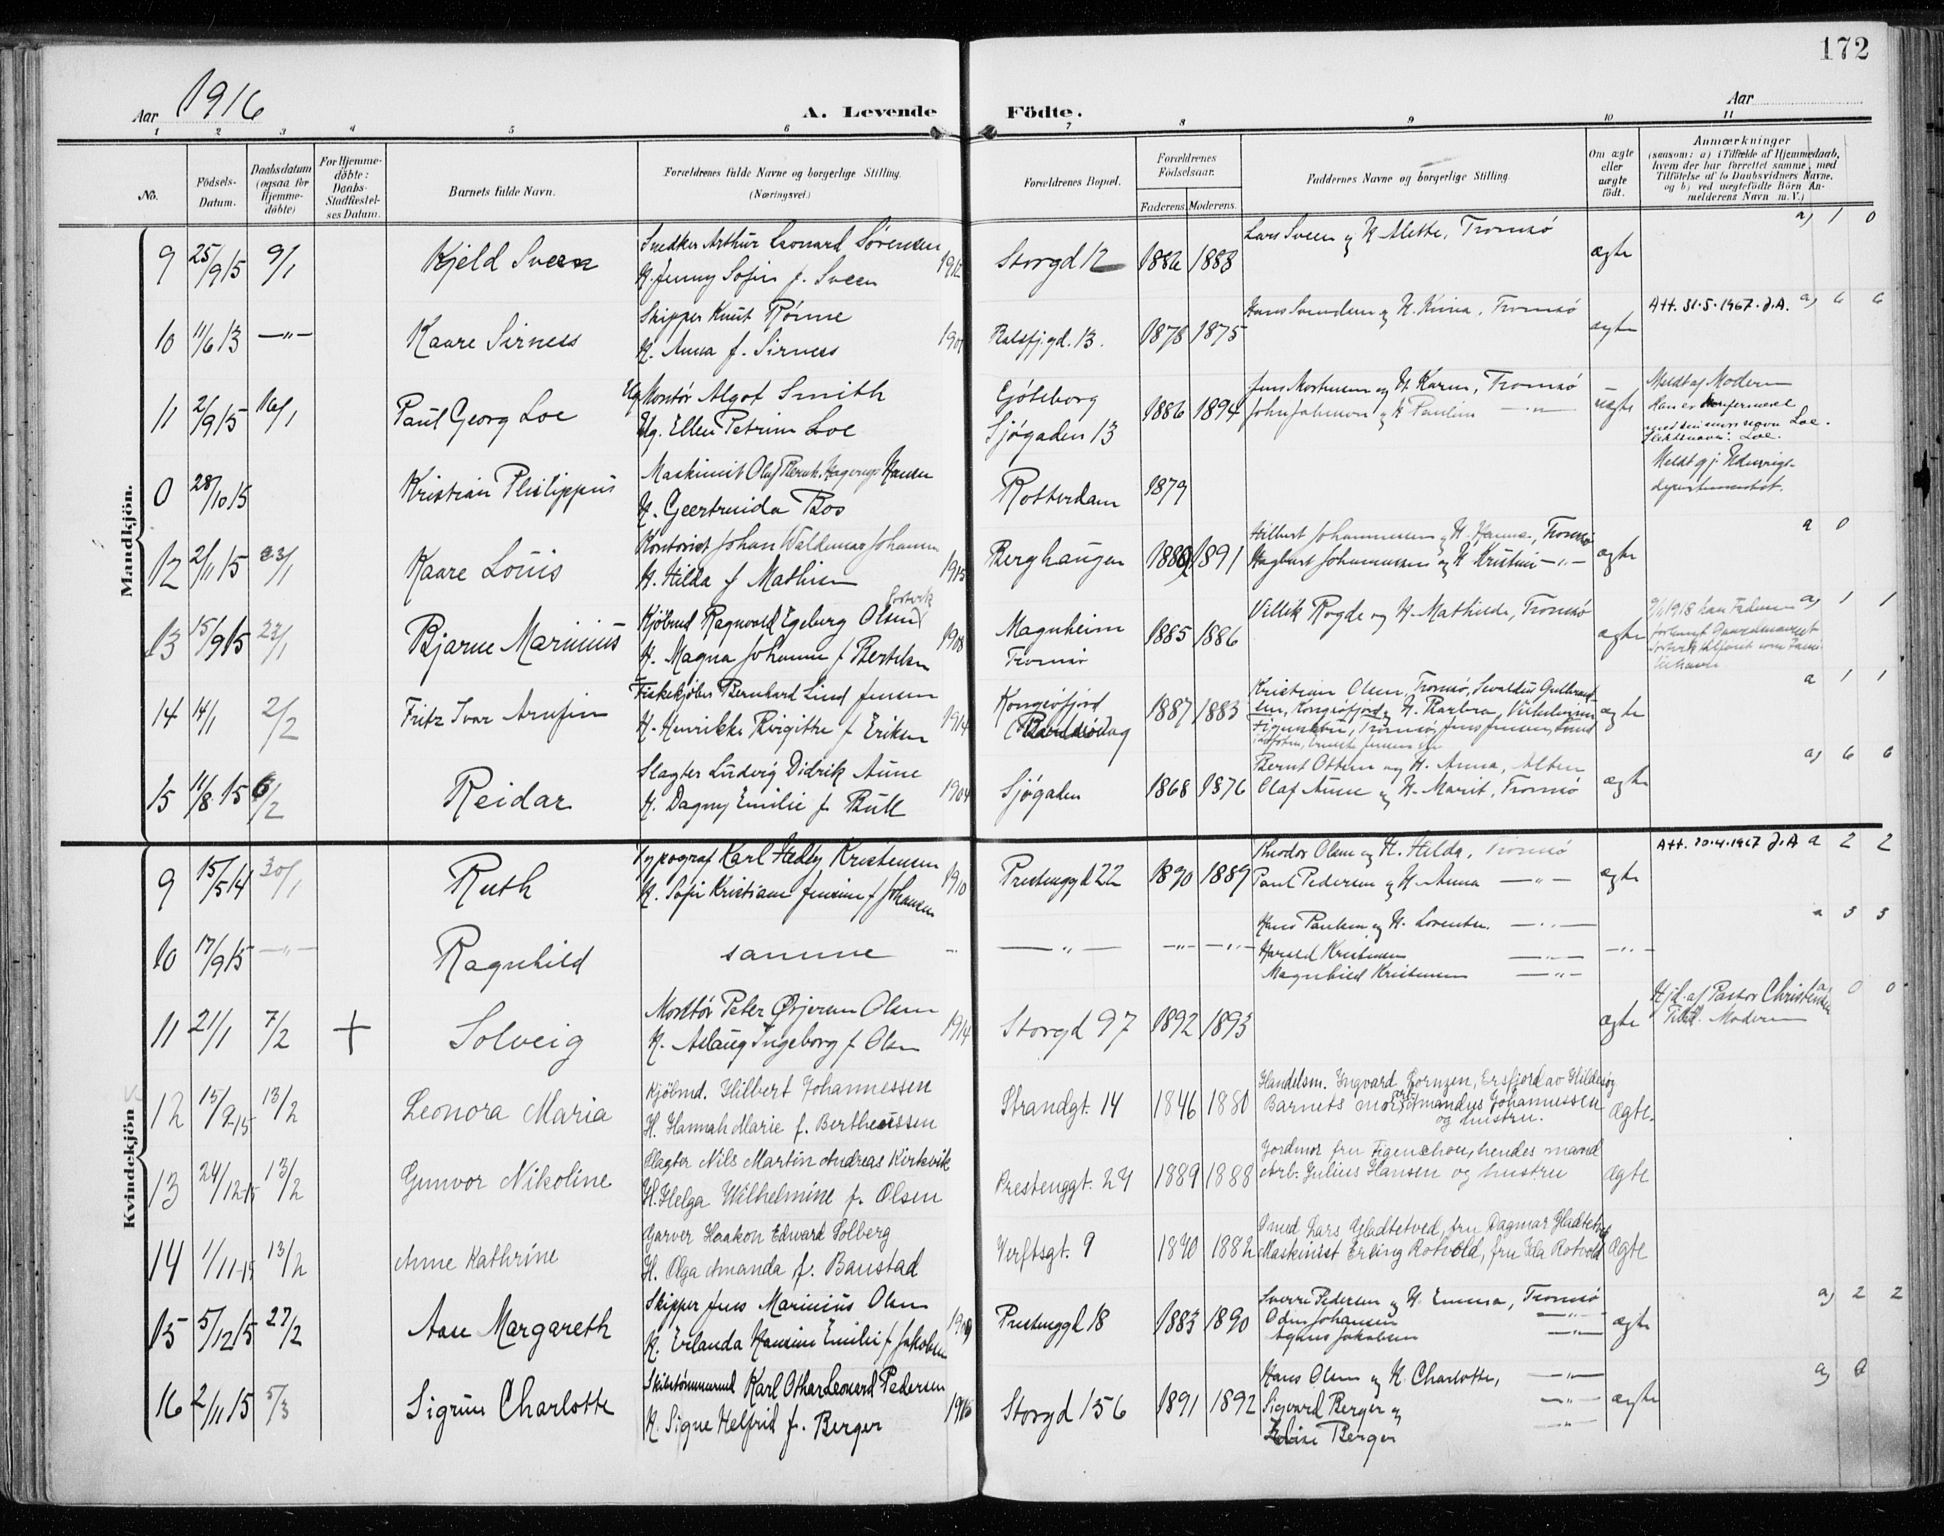 172
Aar 1916
A. Levende Födte.
Aar
1 2 3 4 5 6 7 8 9 10 11
No.
Födsels-Datum.
Daabsdatum (ogsaa for Hjemme-döbte)
For Hjemme-döbte: Daabs-Stadfæstel-ses Datum.
Barnets fulde Navn.
Forældrenes fulde Navne og borgerlige Stilling. (Næringsvei.)
Forældrenes Bopæl.
Forældrenes Födselsaar.
Faderens. Moderens.
Faddernes Navne og borgerlige Stilling.
Om ægte eller uægte födt.
Anmærkninger
(saasom: a) i Tilfælde af Hjemmedaab, hvem der har forrettet samme, med Tilföielse af to Daabsvidners Navne, og b) ved uægtefödte Börn An-melderens Navn m. V.)
Mandkjön.
9 25/9 15 9/1 Kjeld Sveen Snedker Arthur Leonard Sørensen 1912 Storgd 12 1886 1883 Lars Sveen og H. Alette, Tromsø ægte a) 1 0
H. Jenny Sofie f. Sveen
10 11/6 13 —"— Kaare Sirness Skipper Knut Rønne Balsfj.gd. 13. 1878 1875 Tromsø ægte Att. 31.5.1967. J.A. a) 6 6
H. Anna f. Sirness
11 2/9 15 16/1 Paul Georg Loe Montør Algot Smith Gjöteborg 1886 1894 Jens Mortensen og H. Karen, Tromsø uægte Meldt af Moderen
Ug. Ellen Petrine Loe Sjøgaden 13 John Johnson og H. Pauline —"— Han er konfirmeret
med sin mors navn Loe.
Slektsnavn: Loe.
0 28/10 15 Kristian Philippus Maskinist Olaf Hagerup Hansen Rotterdam 1879 Meldt gj. Udenrigs-
H. Geertruida Bos departementet.
12 2/11 15 23/1 Kaare Louis Kontorist Johan Waldemar Johansen 1915 Berghaugen 1891 Hilbert Johannessen og H. Hanna, Tromsø ægte a 0
H. Hilda f Mathisen Hagbart Johannessen og H Kristine —"—
13 15/9 15 23/1 Bjarne Marinius Kjøbmd Ragnvald Egeberg Olsen 1908 Magnheim 1885 1886 Villik Rogde og H. Mathilde, Tromsø ægte a) 1 1
H. Magna Johanne f Bertelsen Tromsø
14 14/1 2/2 Fritz Ivar Arnfin Fiskekjøber Bernhard Lind Jensen 1914 Kongsfjord 1887 1883 Kristian Olsen, Tromsø, ægte a 1 1
H. Henrikke Birgitte f Eriksen
15 11/8 15 6/2 Reidar Slagter Ludvig Didrik Aune 1904 Sjøgaden 1868 1876 Bernt Ottem og H. Anna, Alten ægte a) 6 6
H. Dagny Emilie f. Bull Olaf Aune og H. Marit, Tromsø
Kvindekjön
9 15/5 14 30/1 Ruth Typograf Karl Hedly Kristensen 1910 Prestenggd 22 1890 1889 Theodor Olsen og H. Hilda, Tromsø ægte Att. 20.4.1967 J.A a 2 2
H. Sofie Kristiane Jensine f Johansen Paul Pedersen og H. Anna —"—
10 17/9 15 —"— Ragnhild samme —"— —"— —"— Hans Paulsen og H. Lorentse. —"— —"— a 3 3
Harald Kristensen —"—
Magnhild Kristensen —"—
11 21/1 7/2 + Solveig Montør Peter Ørjeren Olsen 1914 Storgd 97 1892 1893 ægte Hjd. af Pastor Christensen a) 0 0
H. Aslaug Ingeborg f Olsen Tilst. Moderen
12 15/9 15 13/2 Leonora Maria Kjöbmd. Hilbert Johannessen Strandgt. 14 1846 1880 Handelsm. Ingvard Jörnzen, Ersfjord av Hildesøy Ægte.
H. Hannah Marie f. Bertheussen Barnets mor, Amandus Johannessen og hustru.
13 24/12 15 13/2 Gunvor Nikoline Slagter Nils Martin Andreas Kirkvik Prestenggt. 24 1889 1888 Jordmor fru Figenschou, hendes mand Ægte
H. Helga Wilhelmine f. Olsen Arb. Julius Hansen og hustru
14 1/11 15 13/2 Anne Kathrine Garver Haakon Edward Solberg Verftsgt. 9 1882 Smed Lars Gladtetved, fru Dagmar Gladtetved Ægte
H. Olga Amanda f. Banstad Maskinist Erling Rotvold, fru Ida Rotvold
15 5/12 15 27/2 Aase Margareth Skipper Jens Marinius Olsen Prestenggd 18 1883 1890 Sverre Pedersen og H. Emma, Tromsø ægte a) 2 2
H. Erlanda Hansine Emilie f Jakobsen Odin Johansen —"—
Agnes Jakobsen —"—
16 2/11 15 5/3 Sigrun Charlotte Skibstømmermd Karl Othar Leonard Pedersen Storgd 156 1891 1892 Hans Olsen og H. Charlotte, —"— ægte a) 0
H. Signe Helfrid f. Berger Sigvard Berger og —"—
Berger —"—